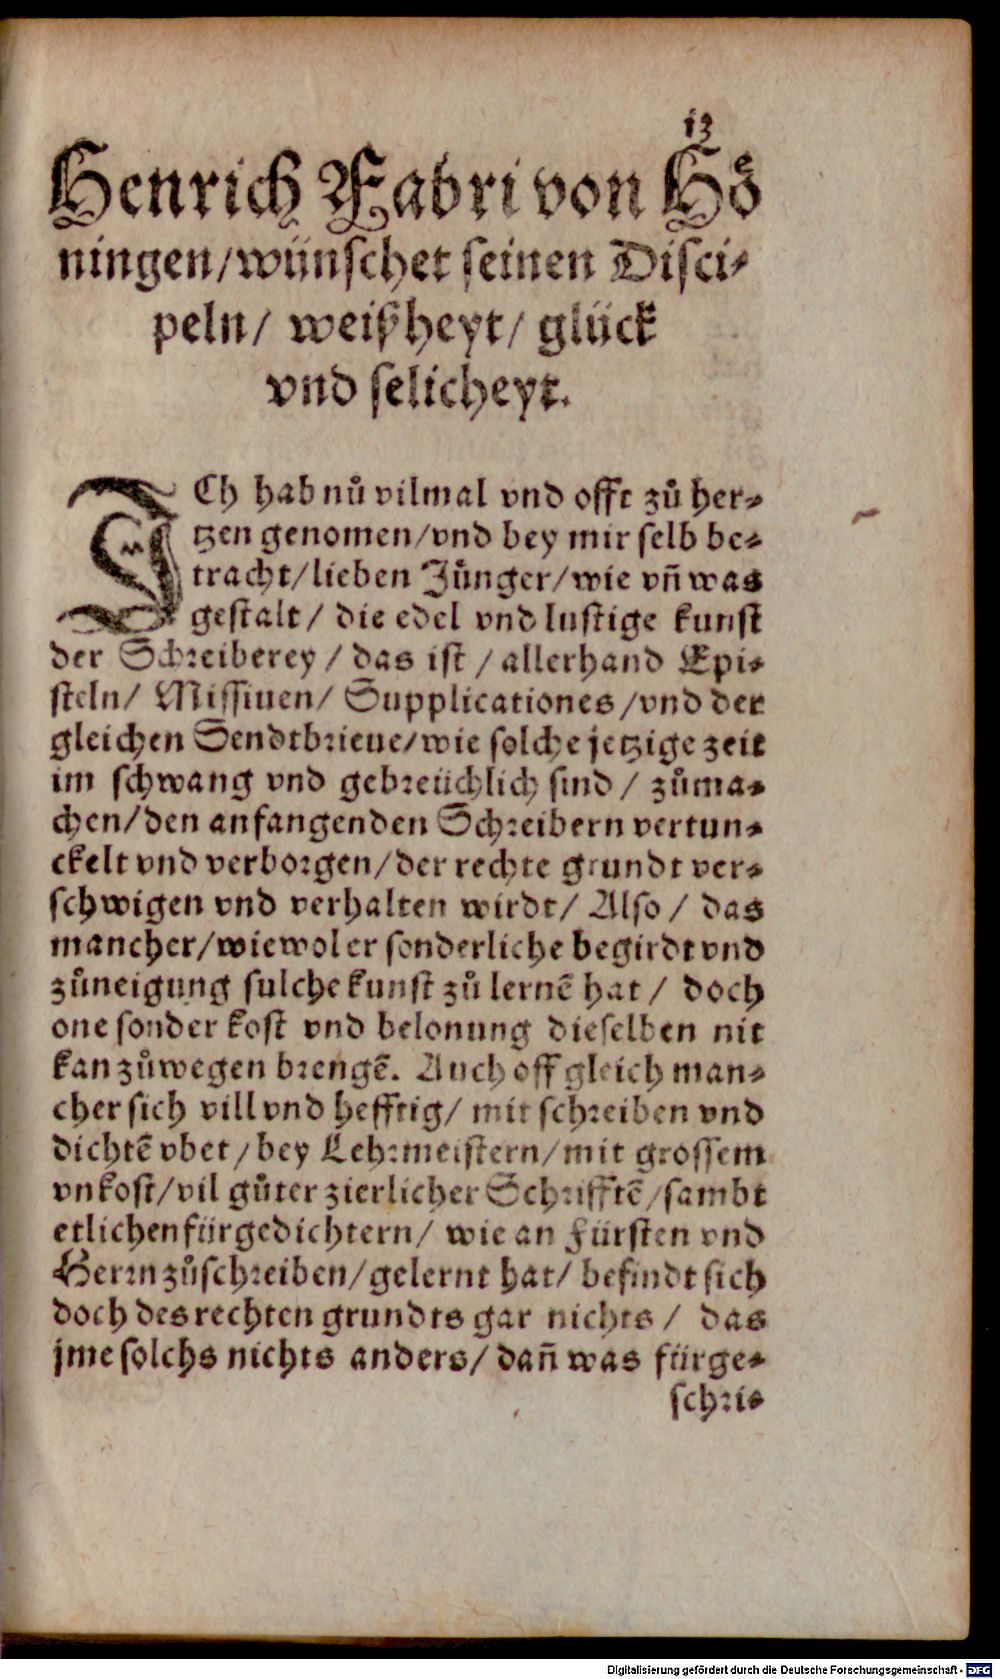 13
Henrich Fabri von Hoͤ
ningen/ wünschet seinen Disci⸗
peln/ weißheyt/ glück
vnd selicheyt.
ICh hab nuͦ vilmal vnd offt zuͦ her⸗
tzen genomen/ vnd bey mir selb be⸗
tracht/ lieben Juͤnger/ wie vñ was
gestalt/ die edel vnd lustige kunst
der Schreiberey/ das ist/ allerhand Epi⸗
steln/ Missiuen/ Supplicationes/ vnd der
gleichen Sendtbrieue/ wie solche jetzige zeit
im schwang vnd gebreüchlich sind/ zuͦma⸗
chen/ den anfangenden Schreibern vertun⸗
ckelt vnd verborgen/ der rechte grundt ver⸗
schwigen vnd verhalten wirdt/ Also/ das
mancher/ wiewol er sonderliche begirdt vnd
zuͦneigung sulche kunst zuͦ lernẽ hat/ doch
one sonder kost vnd belonung dieselben nit
kan zuͦwegen brengẽ. Auch off gleich man⸗
cher sich vill vnd hefftig/ mit schreiben vnd
dichtẽ vbet/ bey Lehrmeistern/ mit grossem
vnkost/ vil guͦter zierlicher Schrifftẽ/ sambt
etlichen fürgedichtern/ wie an Fürsten vnd
Herrn zuͦschreiben/ gelernt hat/ befindt sich
doch des rechten grundts gar nichts/ das
jme solchs nichts anders/ dañ was fürge⸗
schri⸗
Digitalisierung gefördert durch die Deutsche Forschungsgemeinschaft - DFG